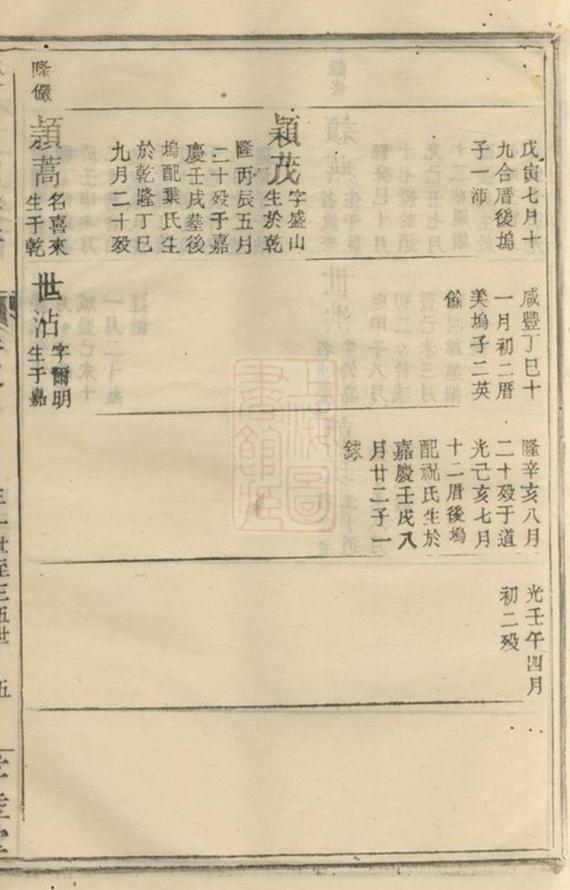 戊寅七月十
九合厝後塢
子一沛
穎茂
字盛山
生於乾
隆丙辰五月
二十歿于嘉
慶壬戌塟後
塢配葉氏生
於乾隆丁巳
九月二十歿
隆儼
穎蒿
名喜來
生于乾
咸豐丁巳十
一月初二厝
美塢子二英
世沾
字爾明
生于嘉
隆辛亥八月
二十歿于道
光己亥七月
十二厝後塢
配祝氏生於
嘉慶壬戌八
月廿二子一
銶
光壬午四月
初二歿
上海圖
書館藏
三十一世至三五世
五